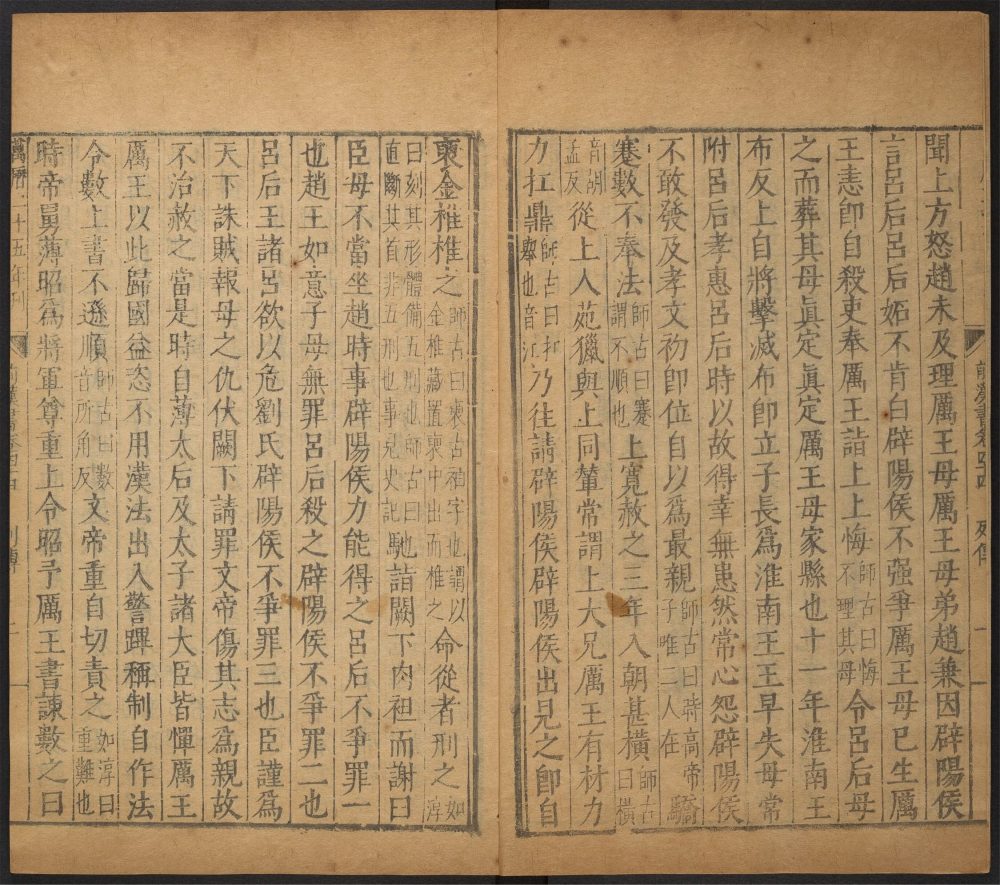 前漢書卷四十四 列傳
聞上方怒趙未及理厲王母厲王母弟趙兼因辟陽侯
言呂后呂后妬不肯白辟陽侯不强爭厲王母已生厲
王恚卽自殺吏奉厲王詣上上悔師古曰悔不理其母令呂后母
之而葬其母眞定眞定厲王母家縣也十一年淮南王
布反上自將擊滅布卽立子長爲淮南王王早失母常
附呂后孝惠呂后時以故得幸無患然常心怨辟陽侯
不敢發及孝文初卽位自以爲最親師古曰時高帝子唯二人在驕
蹇數不奉法師古曰蹇謂不順也上寬赦之三年入朝甚橫師古曰橫
音胡孟反從上入苑獵與上同輦常謂上大兄厲王有材力
力扛鼎師古曰扛舉也音江乃往請辟陽侯辟陽侯出見之卽自
褏金椎椎之師古曰褏古袖字也謂以金椎藏置褏中出而椎之命從者刑之如淳
曰刻其形體備五刑也師古曰直斷其首非五刑也事見史記馳詣闕下肉袒而謝曰
臣母不當坐趙時事辟陽侯力能得之呂后不爭罪一
也趙王如意子母無罪呂后殺之辟陽侯不爭罪二也
呂后王諸呂欲以危劉氏辟陽侯不爭罪三也臣謹爲
天下誅賊報母之仇伏闕下請罪文帝傷其志爲親故
不治赦之當是時自薄太后及太子諸大臣皆憚厲王
厲王以此歸國益恣不用漢法出入警蹕稱制自作法
令數上書不遜順師古曰數音所角反文帝重自切責之如淳曰重難也
時帝舅薄昭爲將軍尊重上令昭予厲王書諫數之曰
萬曆二十五年刊 前漢書卷四十四 列傳 二